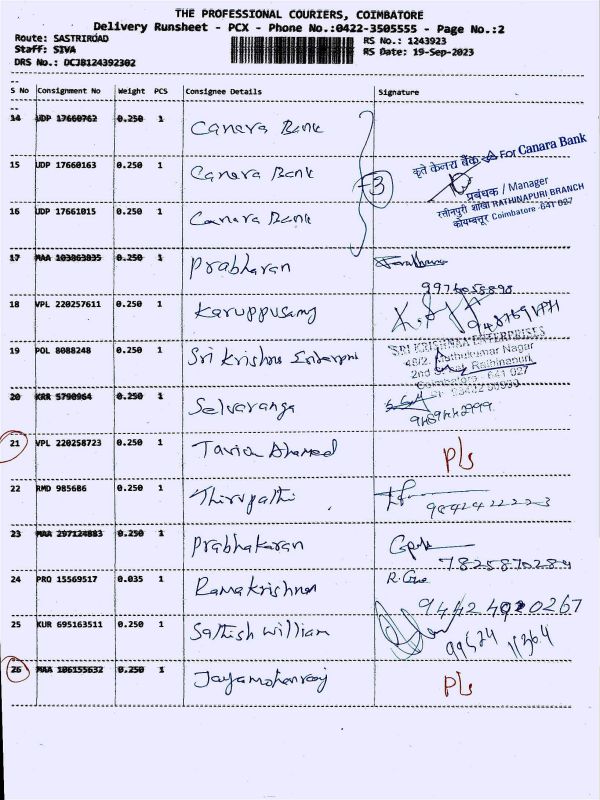 THE PROFESSIONAL COURIERS, COIMBATORE
Delivery Runsheet - PCX - Phone No.:0422-3505555 - Page No.:2
Route: SASTRIROAD RS No.: 1243923
Staff: SIVA RS Date: 19-Sep-2023
DRS No.: DCJB124392302
S No Consignment No Weight PCS Consignee Details Signature
14 UDP 17660762 0.250 1 Canara Bank
कृते केनरा बैंक For Canara Bank
15 UDP 17660163 0.250 1 Canara Bank
3
प्रबंधक / Manager
रत्तीनपुरी शाखा RATHINAPURI BRANCH
कोयम्बत्तूर Coimbatore-641 027
16 UDP 17661015 0.250 1 Canara Bank
17 MAA 103863835 0.250 1 Prabharan
18 VPL 220257611 0.250 1 Karuppusamy
SRI KRISHNA ENTERPRISES
Muthukumar Nagar
2nd Rathinapuri
Coimbatore - 641 027
19 POL 8088248 0.250 1 Sri Krishna
20 KRR 5790964 0.250 1 Selvaranga
21 VPL 220258723 0.250 1 Ahamed Pls
22 RMD 985686 0.250 1 Thirupathi
23 MAA 297124883 0.250 1 Prabhakaran
7825870284
24 PRQ 15569517 0.035 1 Ramakrishnan
25 KUR 695163511 0.250 1 Sathish William
26 MAA 106155632 0.250 1 Jayamohanraj Pls